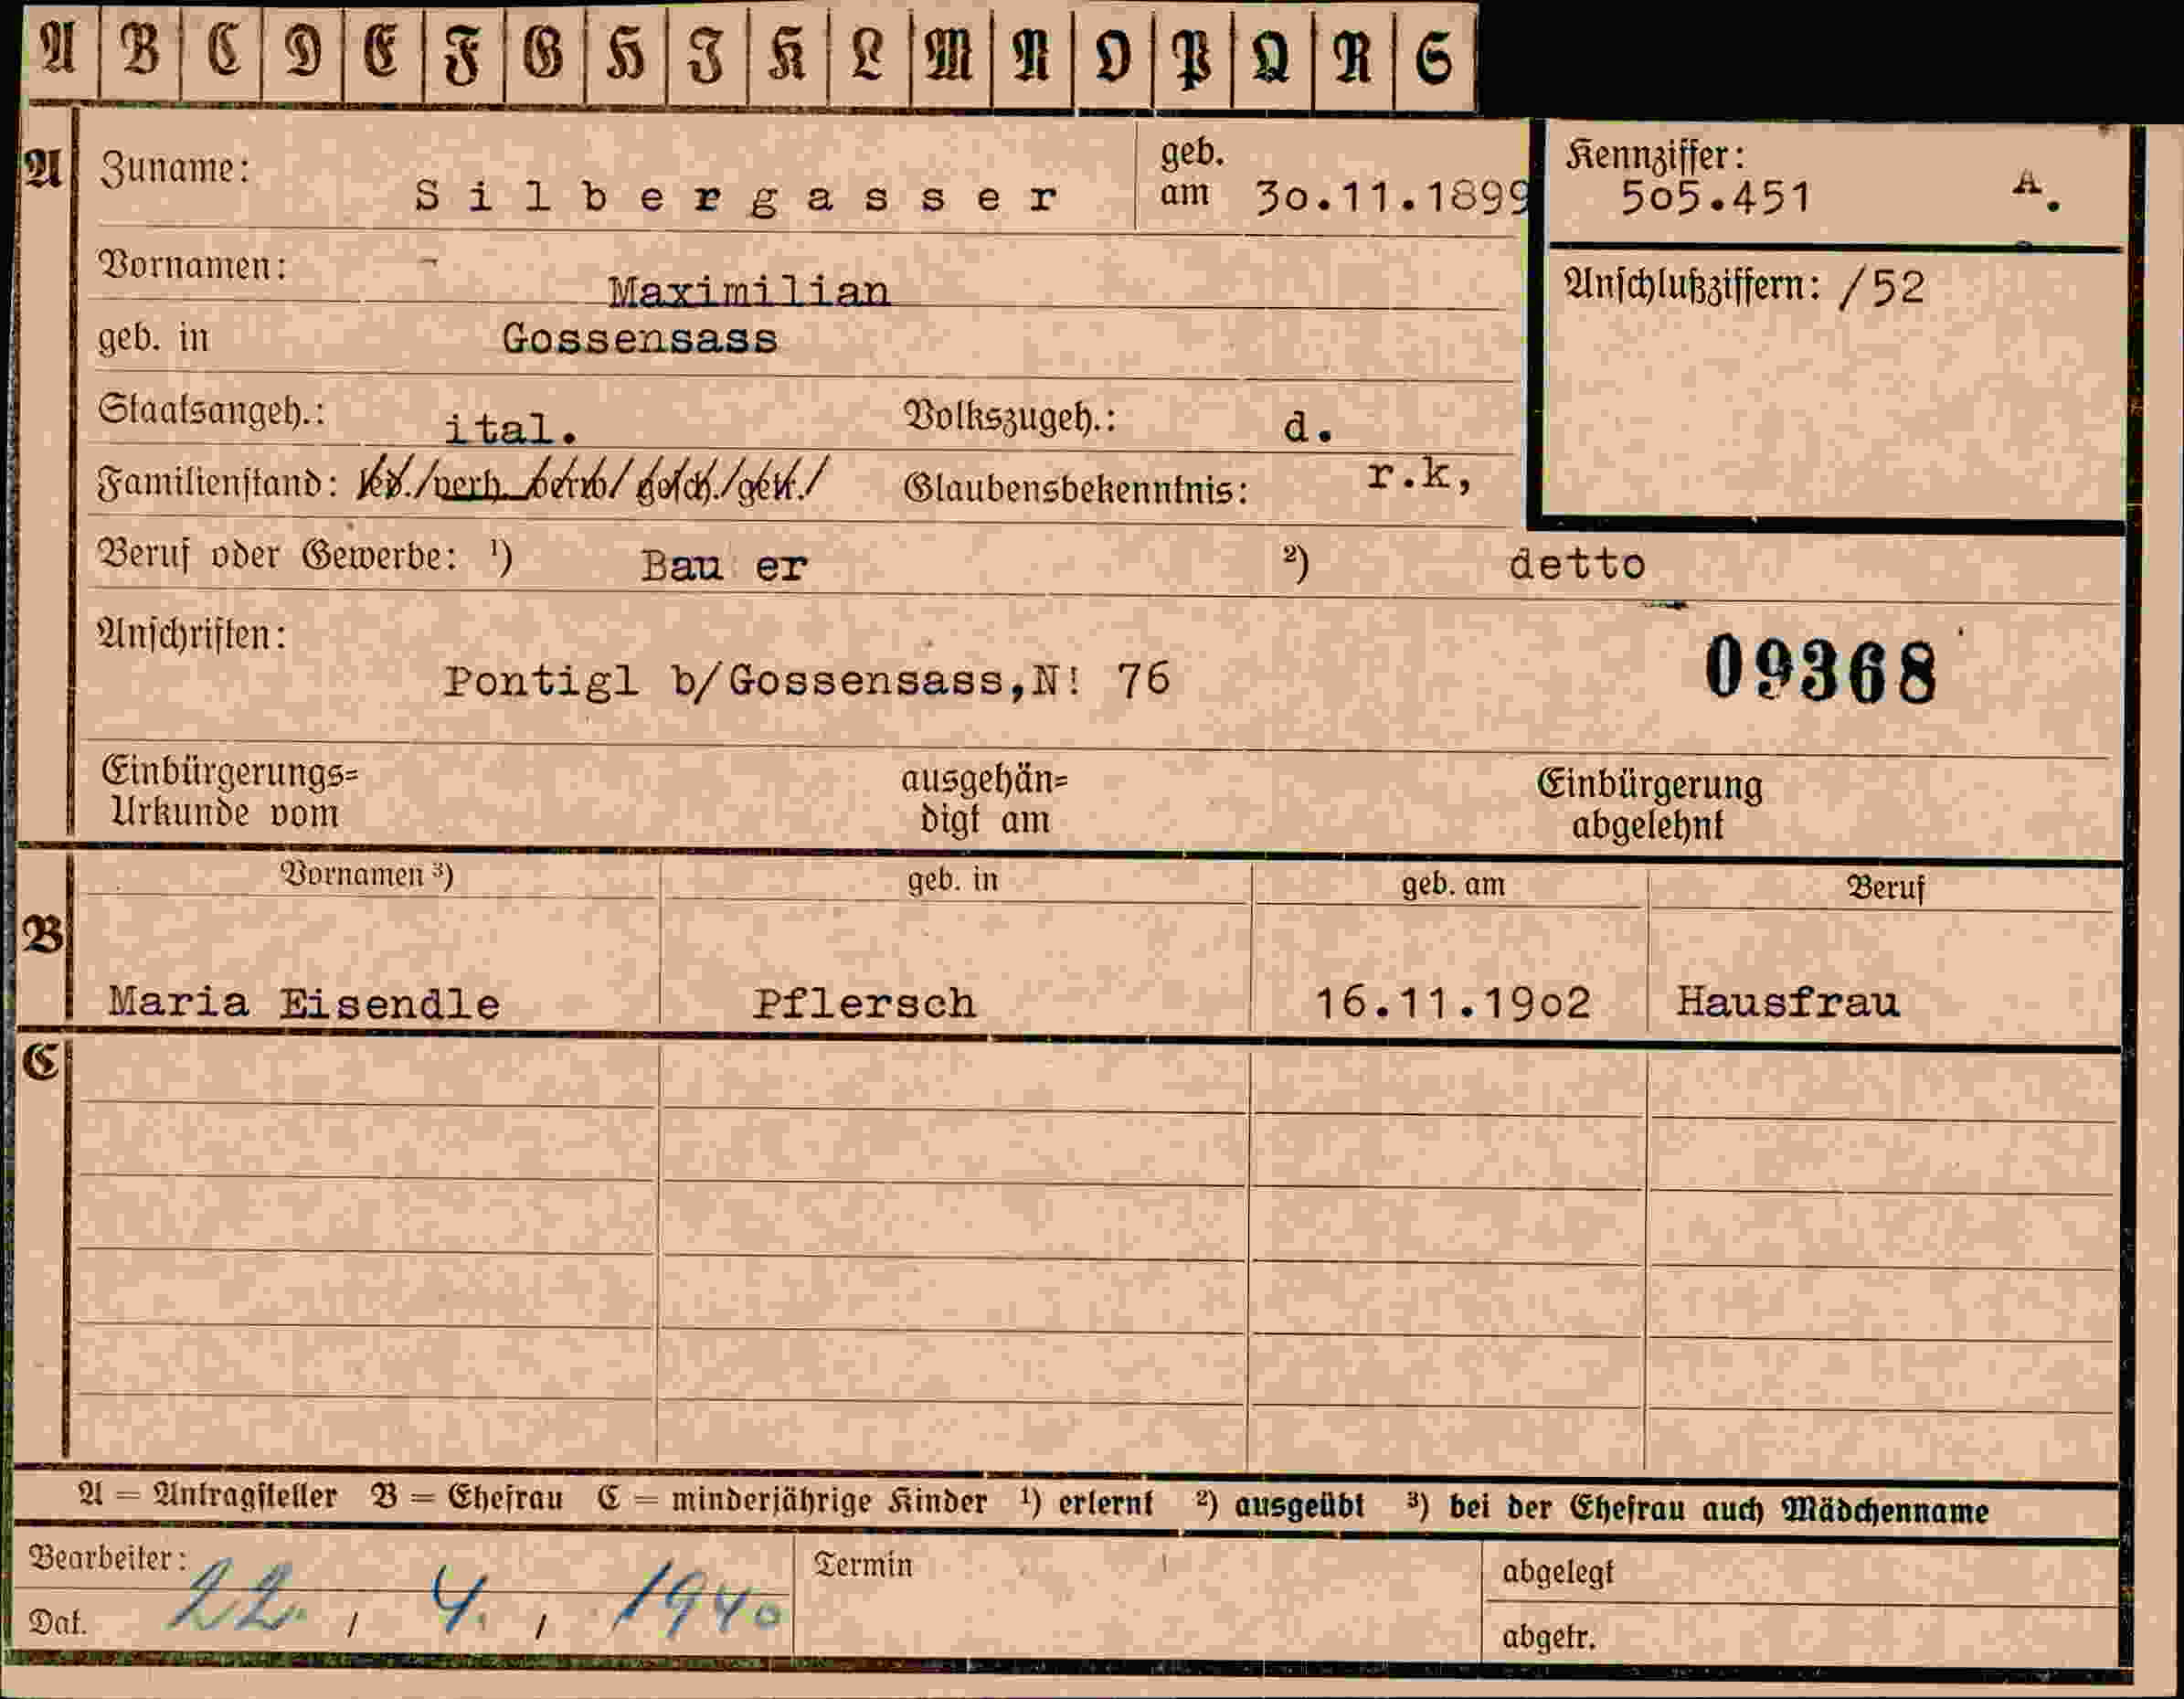 A B C D E F G H I K L M N O P Q R S
A Zuname: Silbergasser geb. am 30.11.1899 Kennziffer: 505.451 A.
Vornamen: Maximilian Anschlußziffern: /52
geb. in Gossensass
Staatsangeh.: ital. Volkszugeh.: d.
Familienstand: led./verh./verw./gesch./getr./ Glaubensbekenntnis: r.k,
Beruf oder Gewerbe: ¹) Bau er ²) detto
Anschriften:
Pontigl b/Gossensass,N! 76 09368
Einbürgerungs= Urkunde vom ausgehän= digt am Einbürgerung abgelehnt
B Vornamen ³) geb. in geb. am Beruf
Maria Eisendle Pflersch 16.11.19o2 Hausfrau
C
A = Antragsteller B = Ehefrau C = minderjährige Kinder ¹) erlernt ²) ausgeübt ³) bei der Ehefrau auch Mädchenname
Bearbeiter: Termin abgelegt
Dat. 22. / 4. / 1940 abgetr.